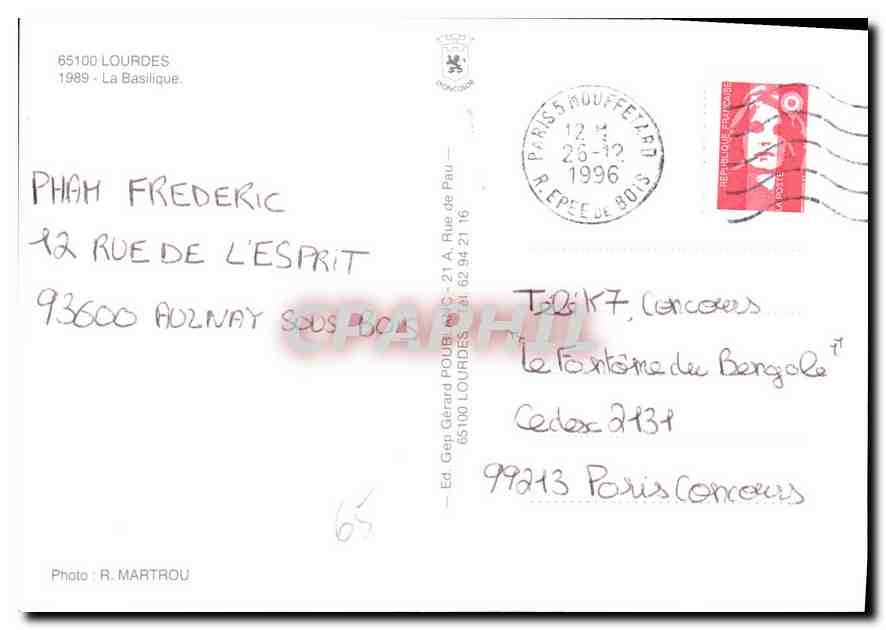 65100 LOURDES
1989 - La Basilique.
LYONCOLOR
PHAM FREDERIC
12 RUE DE L'ESPRIT
93600 AULNAY SOUS BOIS
65
Photo : R. MARTROU
— Ed. Gep Gérard POUR - 21 A, Rue de Pau —
65100 LOURDES - Tél. 62 94 21 16
PARIS 5 MOUFFETARD
12 H
26-12
1996
R. EPEE DE BOIS
REPUBLIQUE FRANÇAISE
LA POSTE
Télé K7, Concours
"Le Fantôme du Bengale"
Cedex 2131
99213 Paris Concours
CPAPHIL